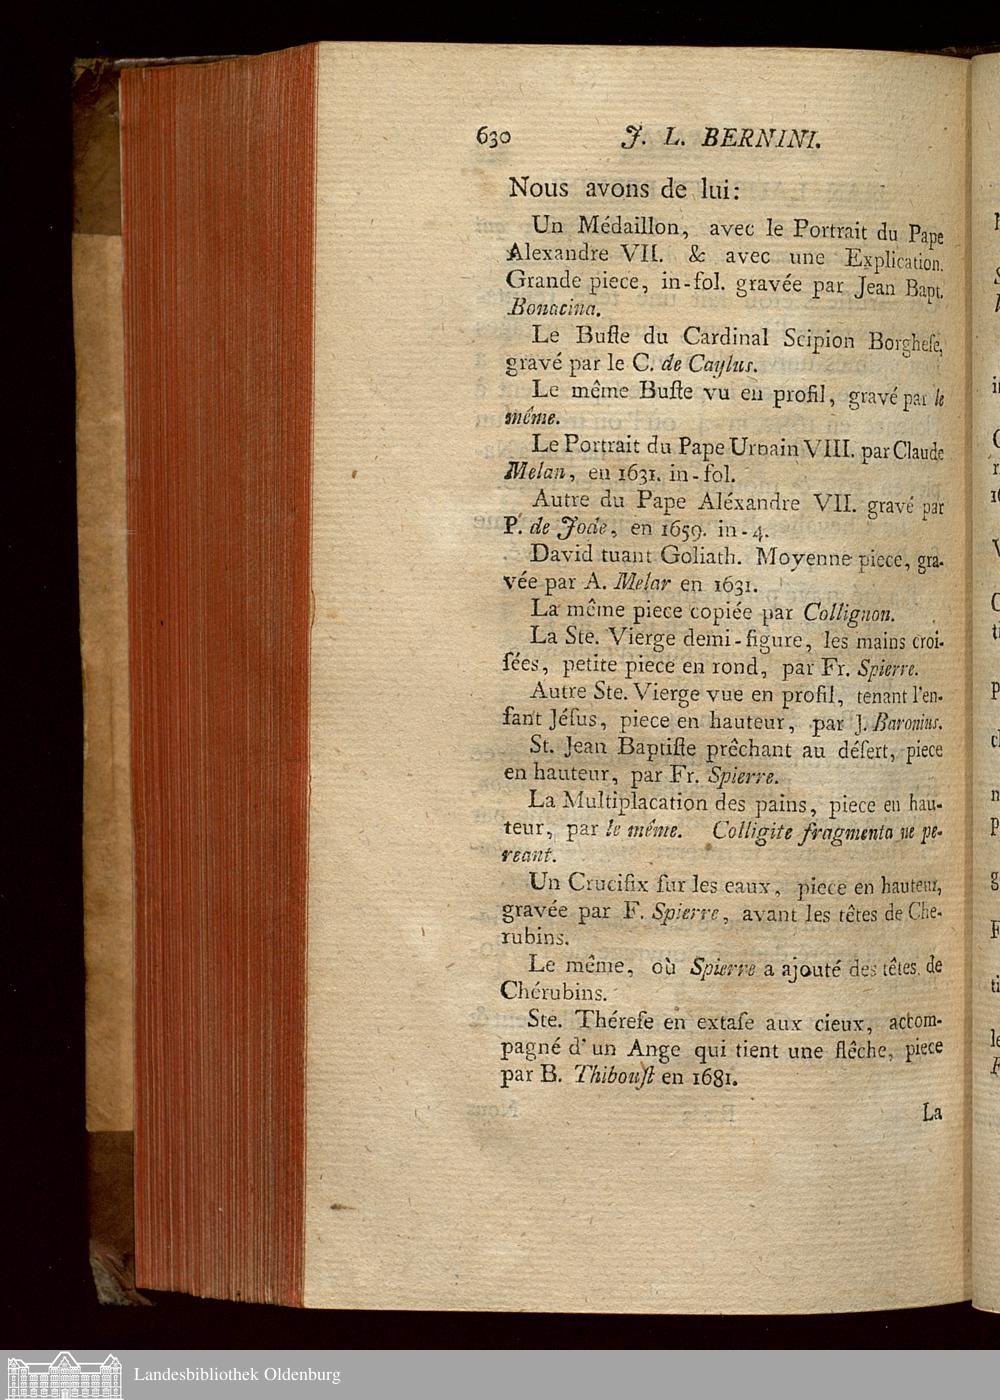 630 J. L. BERNINI.
Nous avons de lui:
Un Médaillon, avec le Portrait du Pape
Alexandre VII. & avec une Explication.
Grande piece, in-fol. gravée par Jean Bapt.
Bonacina.
Le Buſte du Cardinal Scipion Borgheſe,
gravé par le C. de Caylus.
Le même Buſte vu en profil, gravé par le
même.
Le Portrait du Pape Urbain VIII. par Claude
Melan, en 1631. in-fol.
Autre du Pape Aléxandre VII. gravé par
P. de Jode, en 1659. in-4.
David tuant Goliath. Moyenne piece, gra-
vée par A. Melar en 1631.
La même piece copiée par Collignon.
La Ste. Vierge demi-figure, les mains croi-
ſées, petite piece en rond, par Fr. Spierre.
Autre Ste. Vierge vue en profil, tenant l'en-
fant Jéſus, piece en hauteur, par J. Baronius.
St. Jean Baptiſte prêchant au déſert, piece
en hauteur, par Fr. Spierre.
La Multiplacation des pains, piece en hau-
teur, par le même. Colligite fragmenta ne pe-
reant.
Un Crucifix ſur les eaux, piece en hauteur,
gravée par F. Spierre, avant les têtes de Che-
rubins.
Le même, où Spierre a ajouté des têtes de
Chérubins.
Ste. Théreſe en extaſe aux cieux, accom-
pagné d'un Ange qui tient une flêche, piece
par B. Thibouſt en 1681.
La
Landesbibliothek Oldenburg